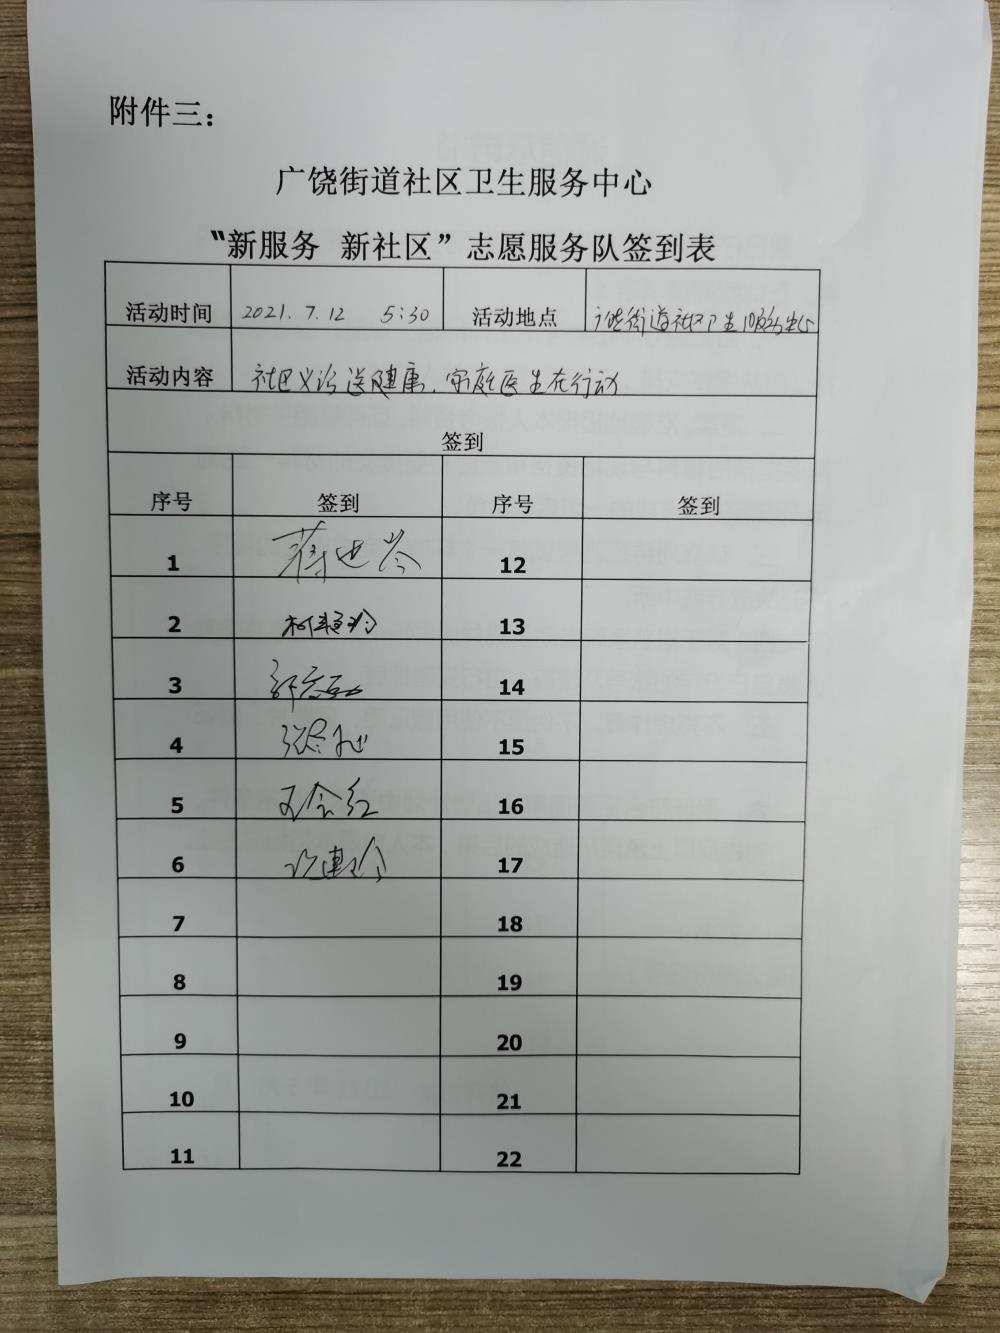 附件三：
广饶街道社区卫生服务中心
“新服务 新社区”志愿服务队签到表
活动时间 2021.7.12 5:30 活动地点 广饶街道社区卫生服务中心
活动内容 社区义诊送健康、家庭医生在行动
签到
序号 签到 序号 签到
1 12
2 13
3 14
4 15
5 16
6 17
7 18
8 19
9 20
10 21
11 22